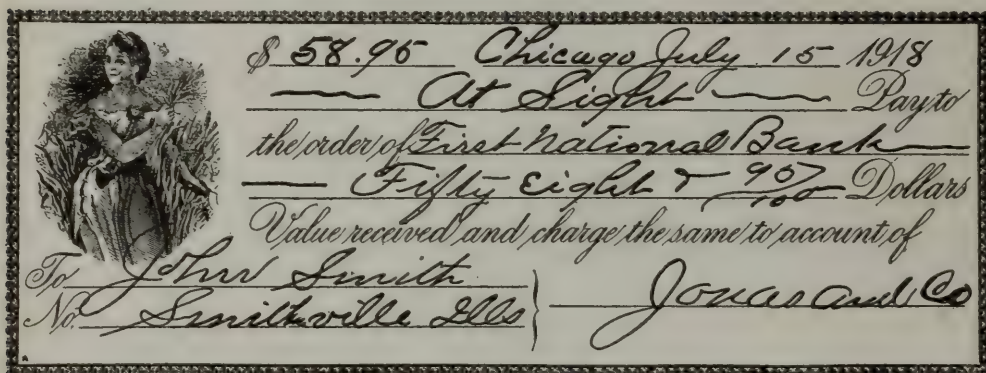 $ 58.95 Chicago July 15 1918
At Sight Pay to
the order of First National Bank
Fifty Eight & 95/100 Dollars
Value received and charge the same to account of
To John Smith
No. Smithville Ills
Jonas and Co